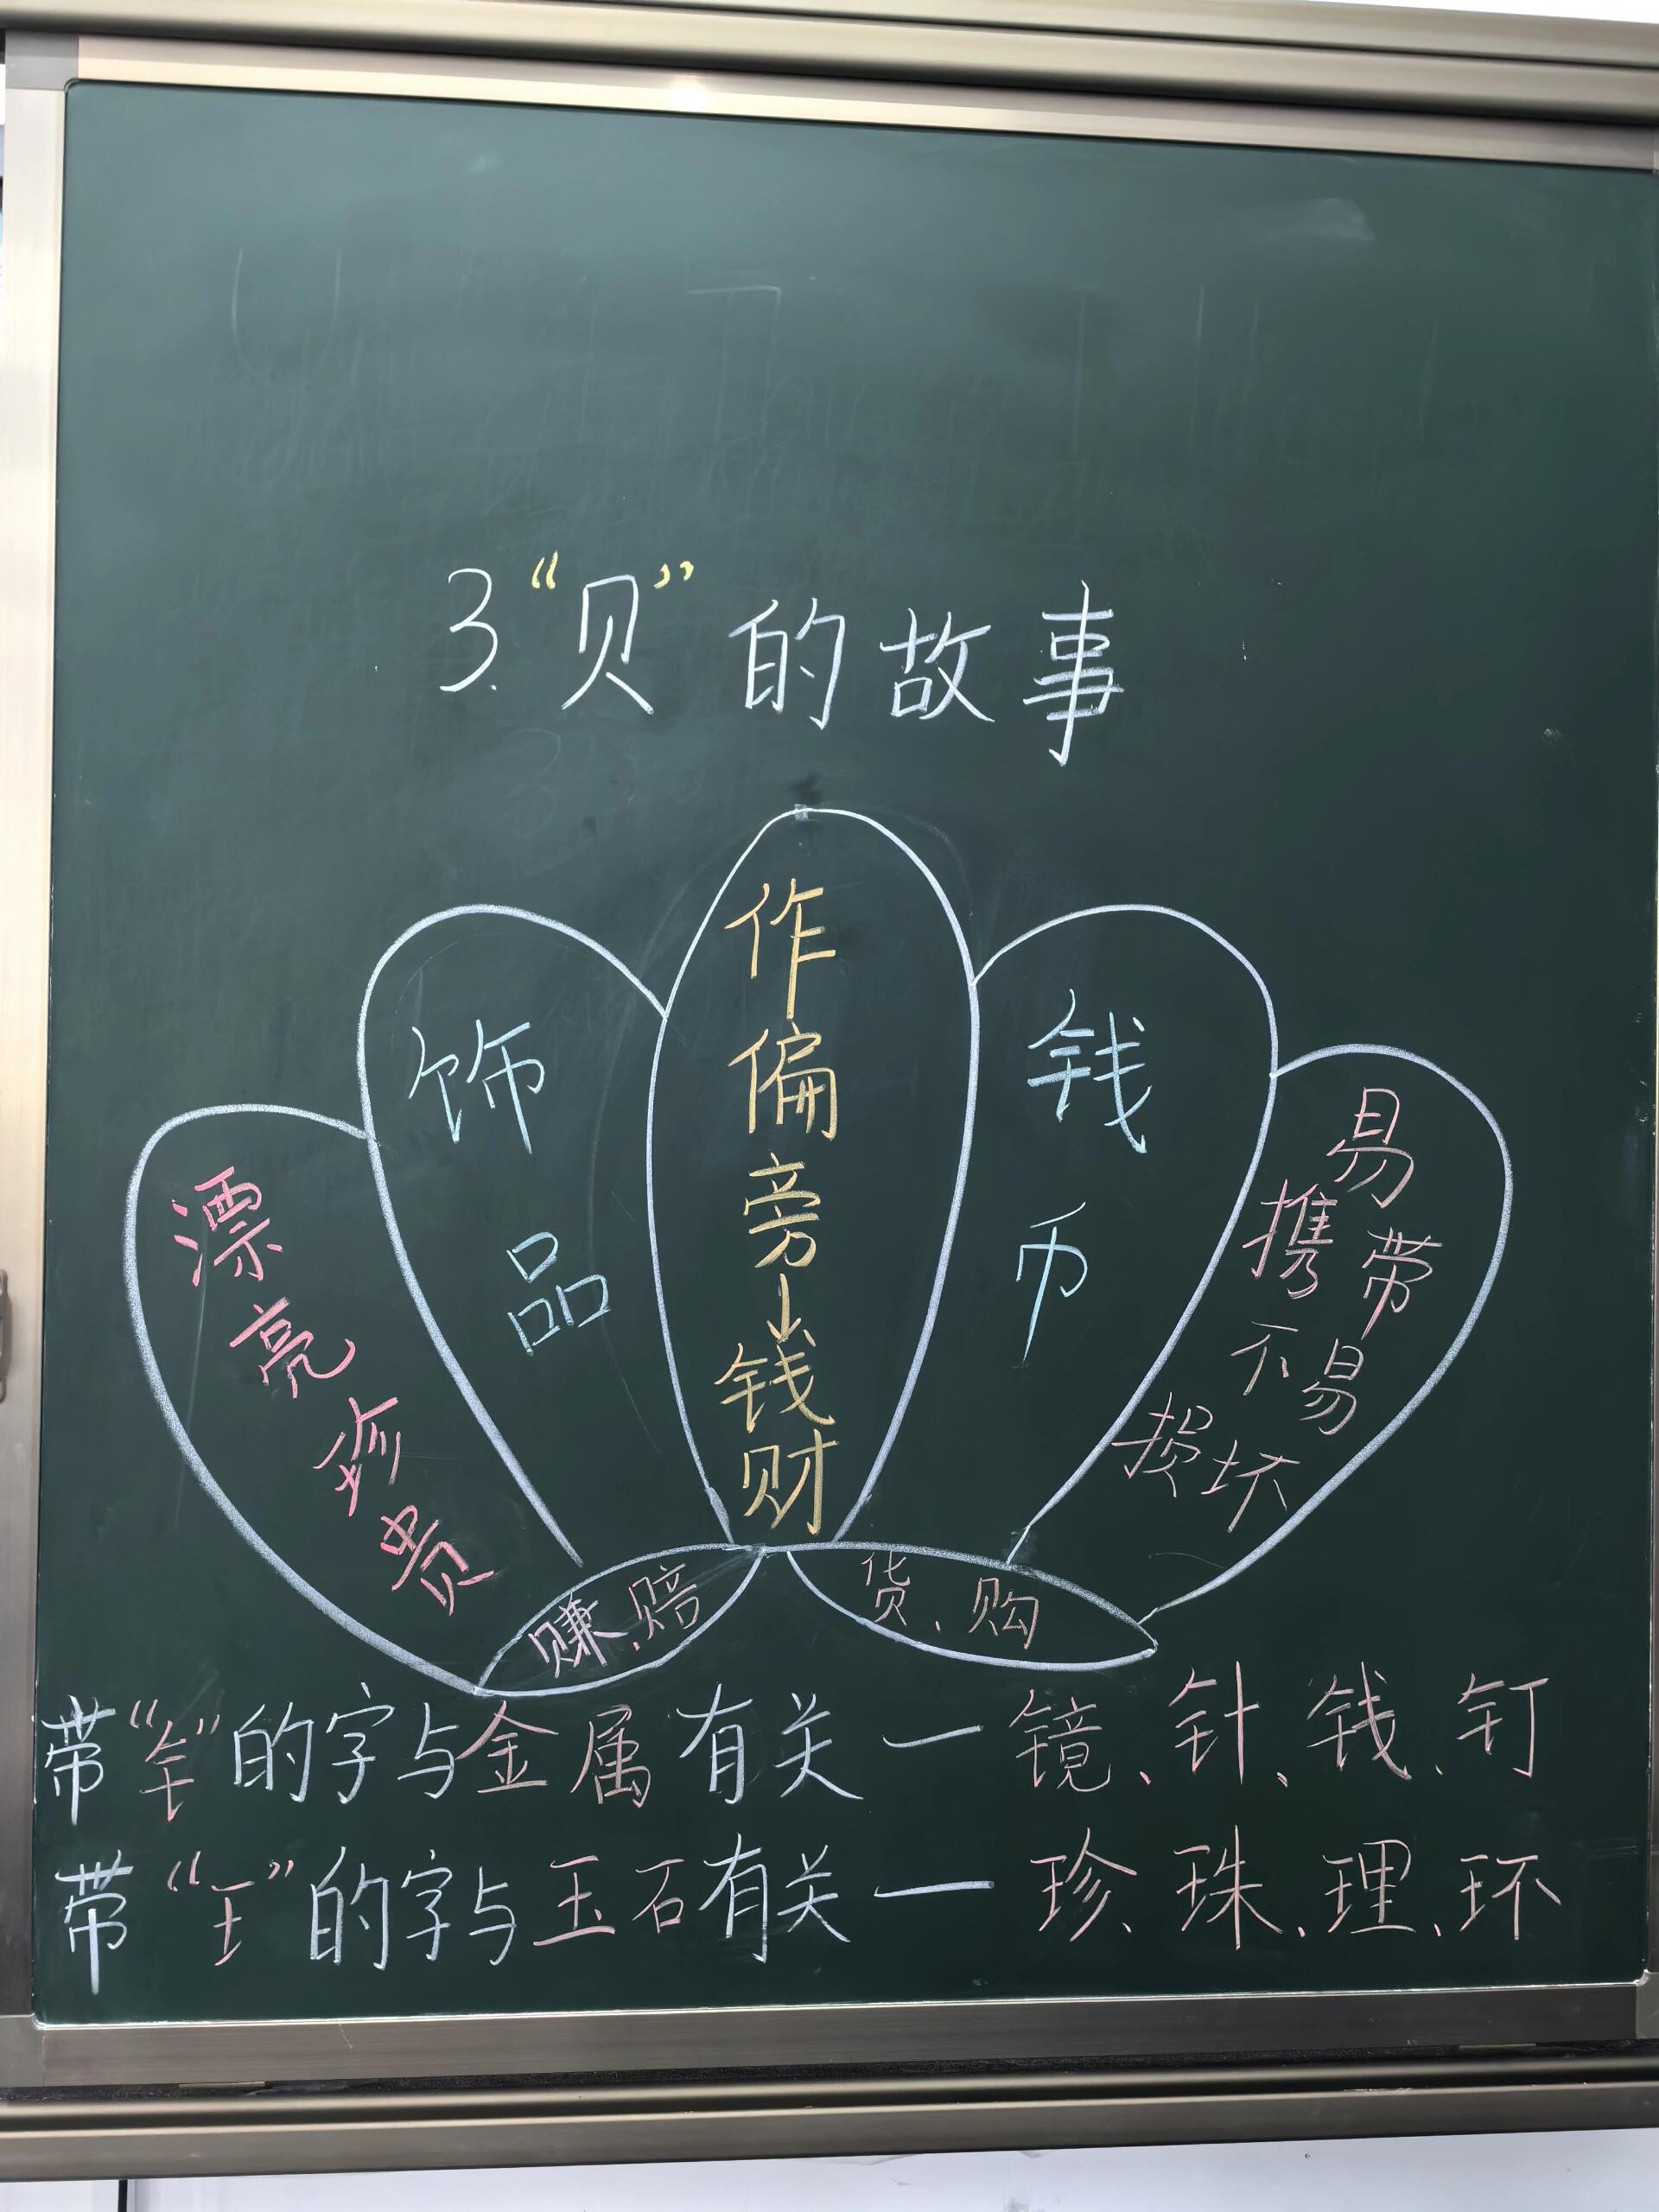 3.“贝”的故事
漂亮珍贵
饰品
作偏旁↓钱财
钱币
易携带
不易损坏
赚、赔
货、购
带“钅”的字与金属有关一镜、针、钱、钉
带“王”的字与玉石有关一珍、珠、理、环